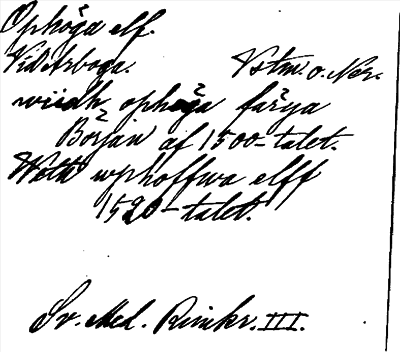 Ophöga elf.
Vid Arboga. Vstm. o. Ner.
wiidh ophöga färya
Början af 1500-talet.
Wthi wphoffwa elff
1520-talet.
Sv. Med. Rimkr. III.